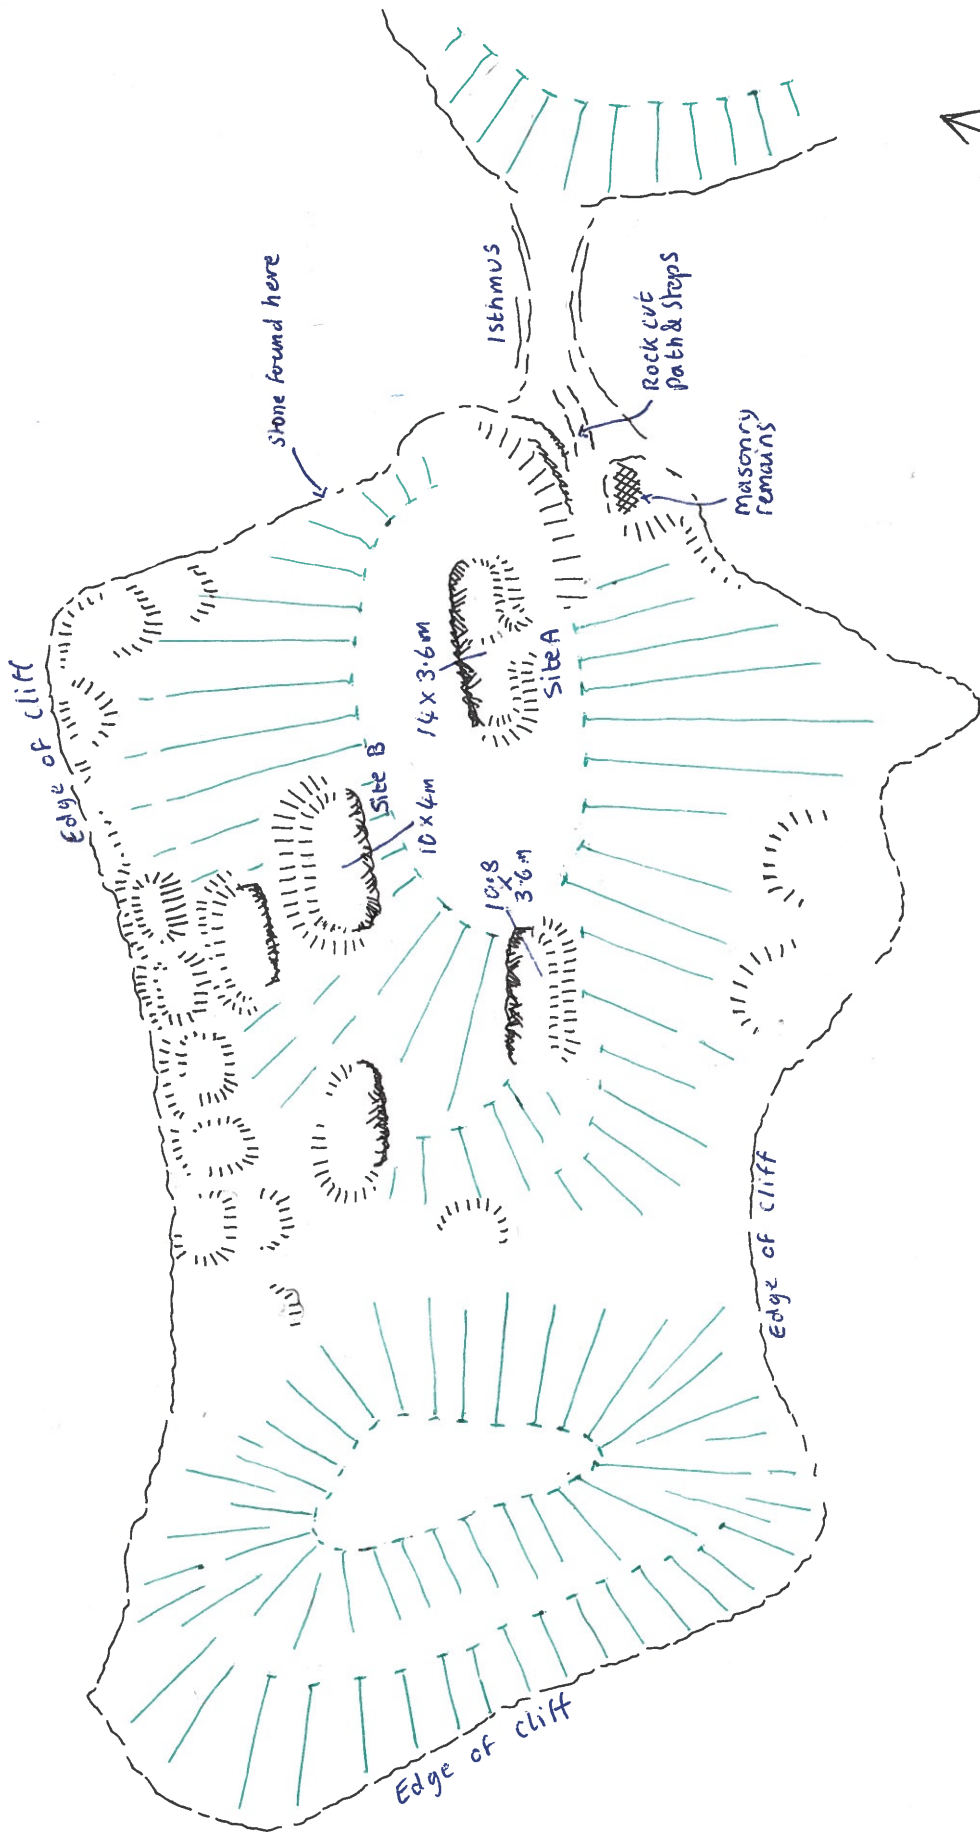 Stone found here
Isthmus
Rock cut
Path & Steps
Masonry
remains
Edge of Cliff
14 x 3.6m
Site A
Site B
10 x 4m
10.8
x
3.6m
Edge of Cliff
Edge of Cliff